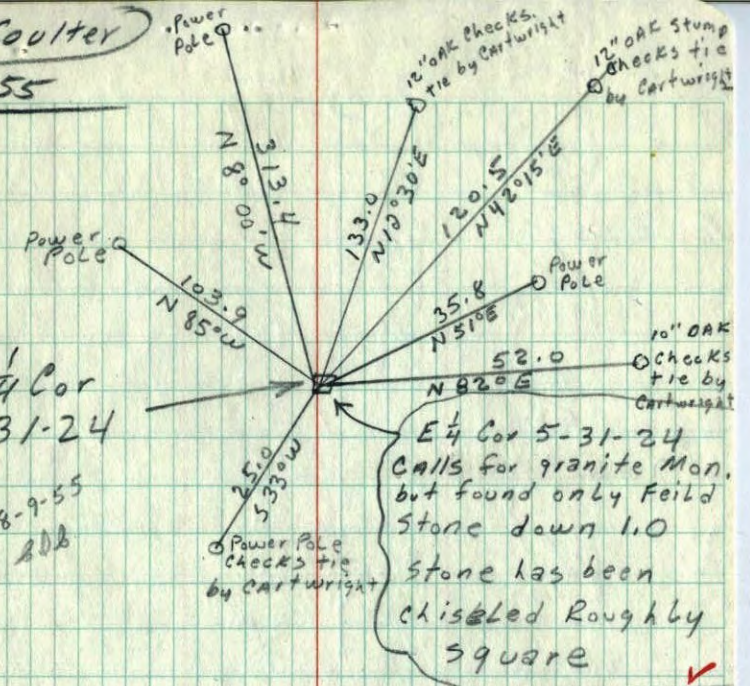 Coulter
55
Power
Pole
12" OAK Checks.
tie by Cartwright
12" OAK Stump
Checks tie
by Cartwright
313.4
N 8° 00' W
133.0
N 12° 30' E
120.5
N 42° 15' E
Power
Pole
103.9
N 85° W
Power
Pole
35.8
N 51° E
52.0
N 82° E
10" OAK
Checks
tie by
Cartwright
1/4 Cor
31-24
8-9-55
25.0
S 33° W
Power Pole
Checks tie
by Cartwright
E 1/4 Cor 5-31-24
Calls for granite Mon.
but found only Feild
Stone down 1.0
Stone has been
chisbled Roughly
square